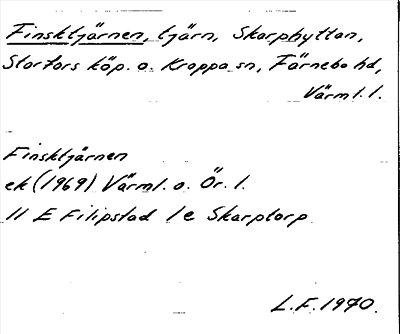 Finsktjärnen, tjärn, Skarphyttan,
Storfors köp. o. Kroppa sn, Färnebo hd,
Värml. l.
Finsktjärnen
ek (1969) Värml. o. Ör. l.
11 E Filipstad 1e Skarptorp
L.F. 1970.